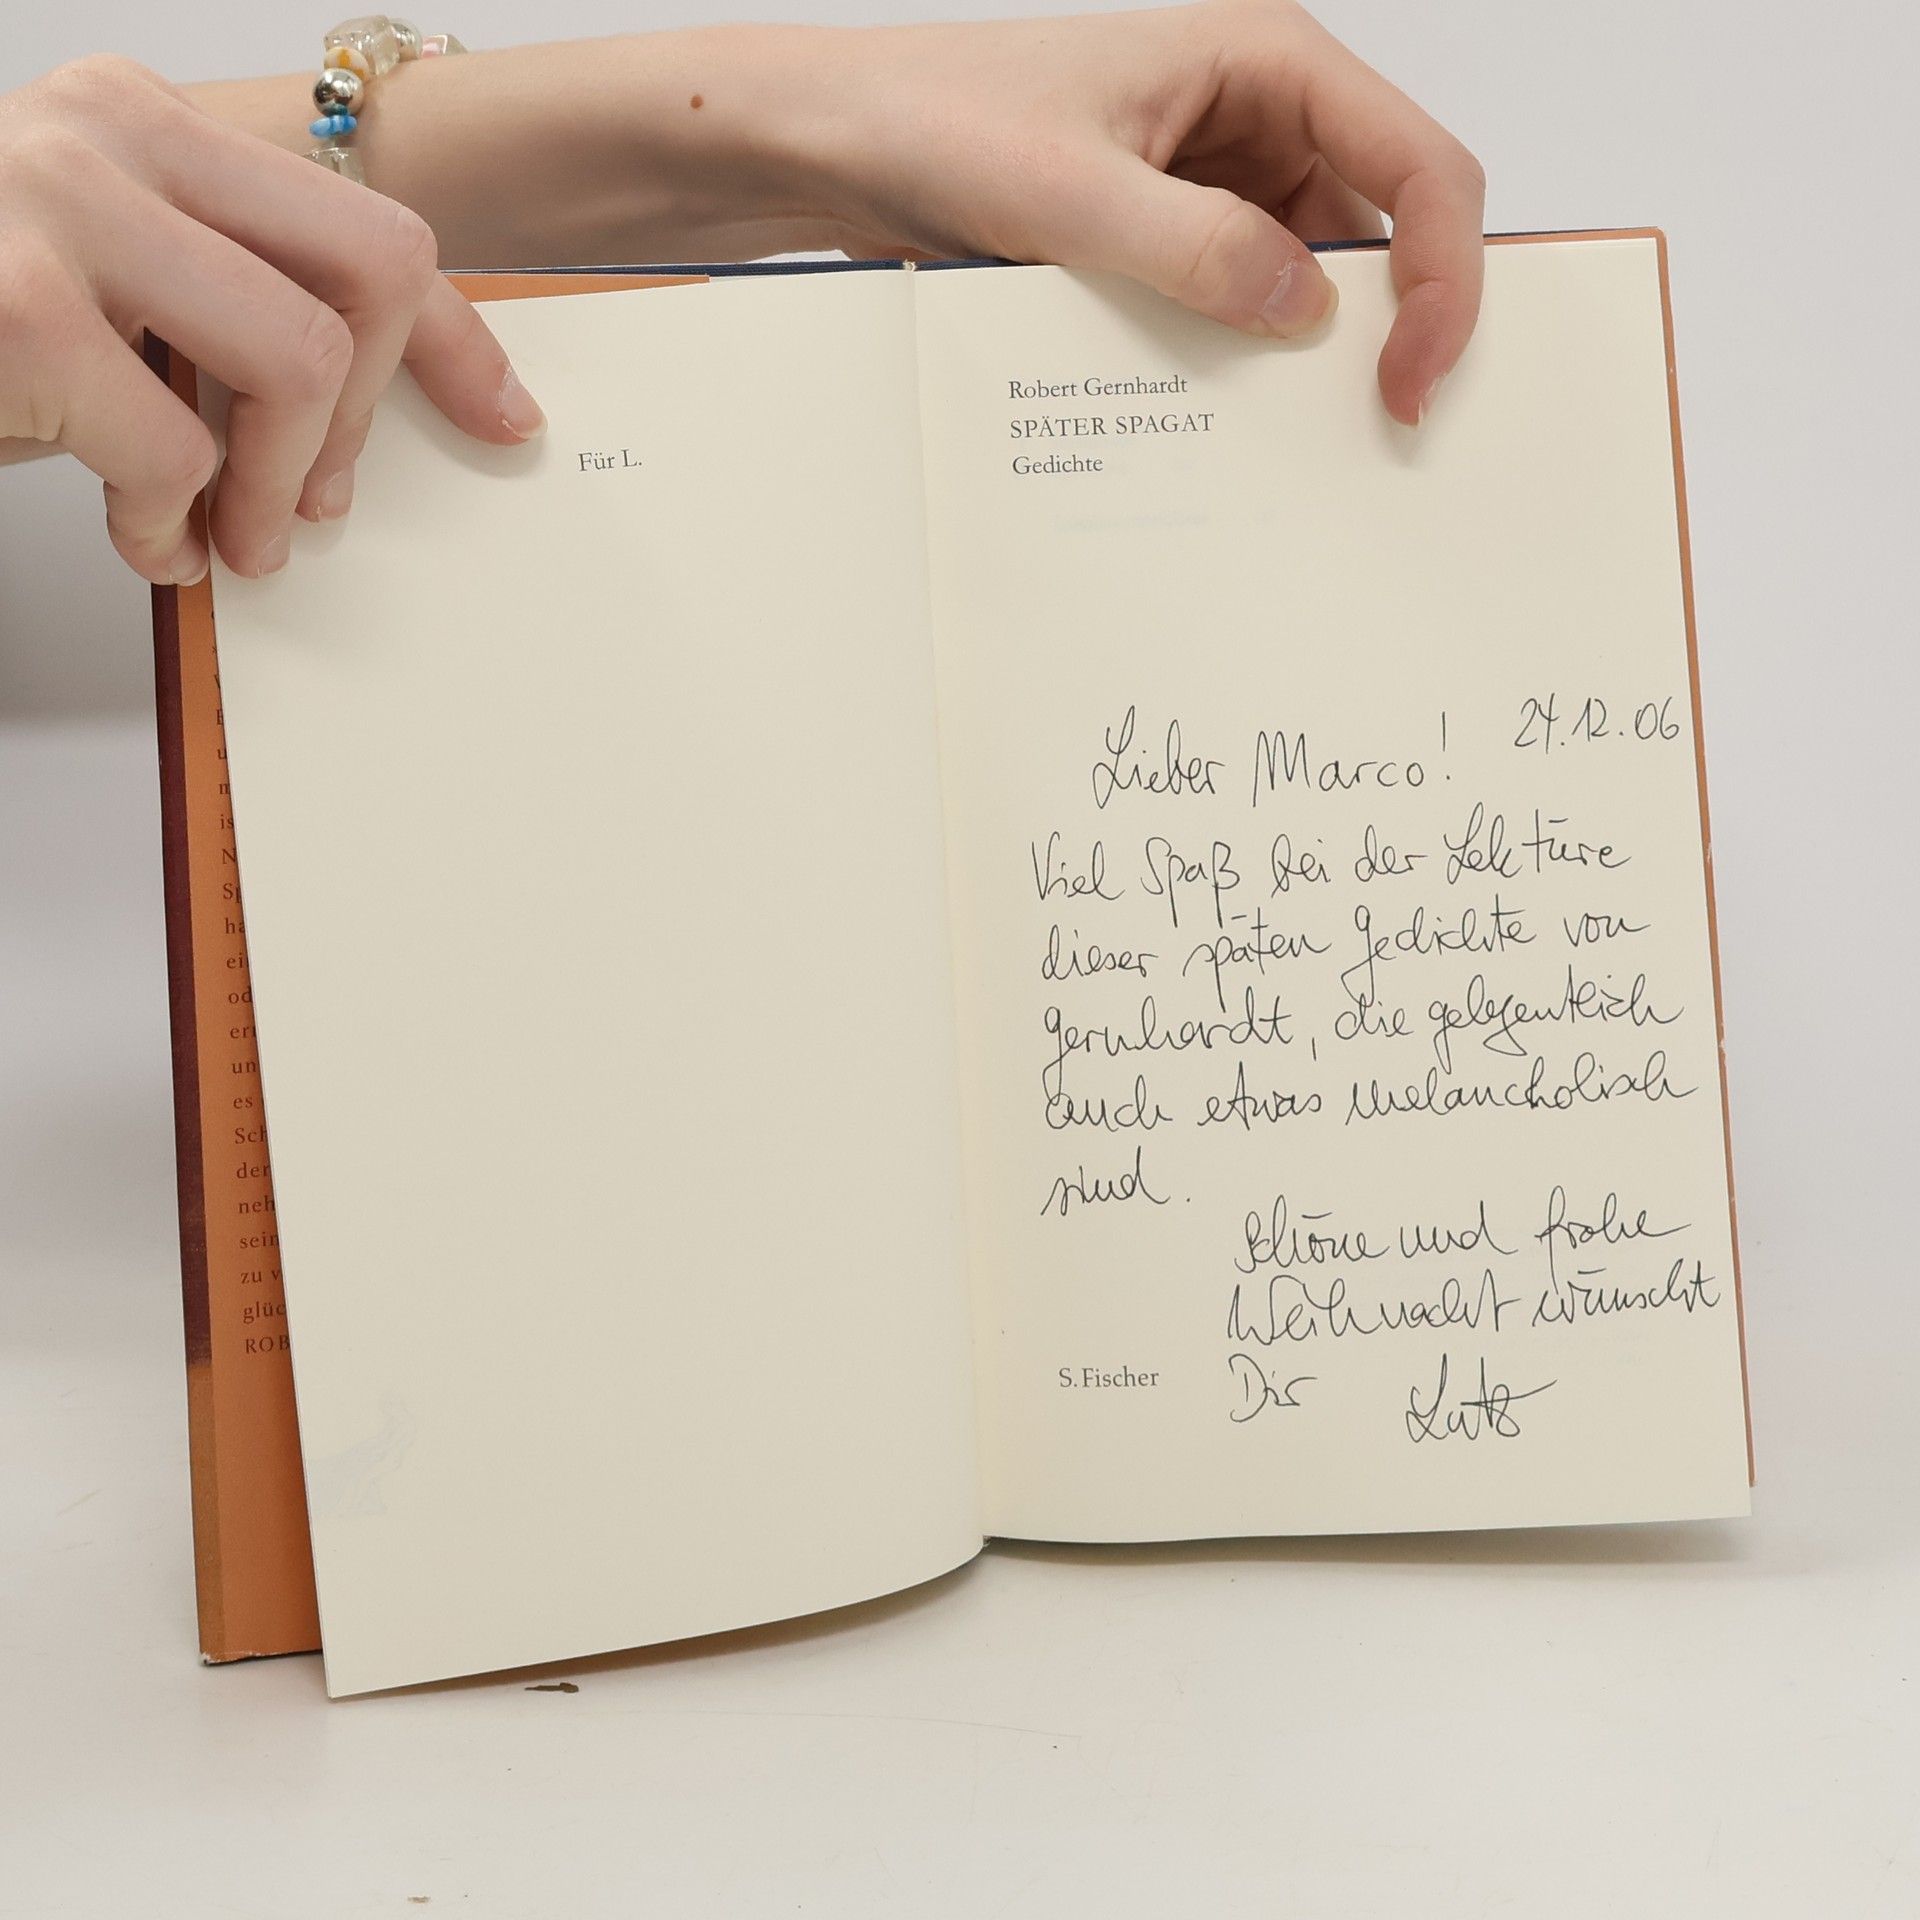 Für L.
Robert Gernhardt
SPÄTER SPAGAT
Gedichte
24.12.06
Lieber Marco!
Viel Spaß bei der Lektüre
dieser späten Gedichte von
Gernhardt, die gelegentlich
auch etwas melancholisch
sind.
Schöne und frohe
Weihnacht wünscht
Dir Lutz
S. Fischer
is
ha
od
un
es
Sch
der
neh
sein
zu v
glüc
ROB